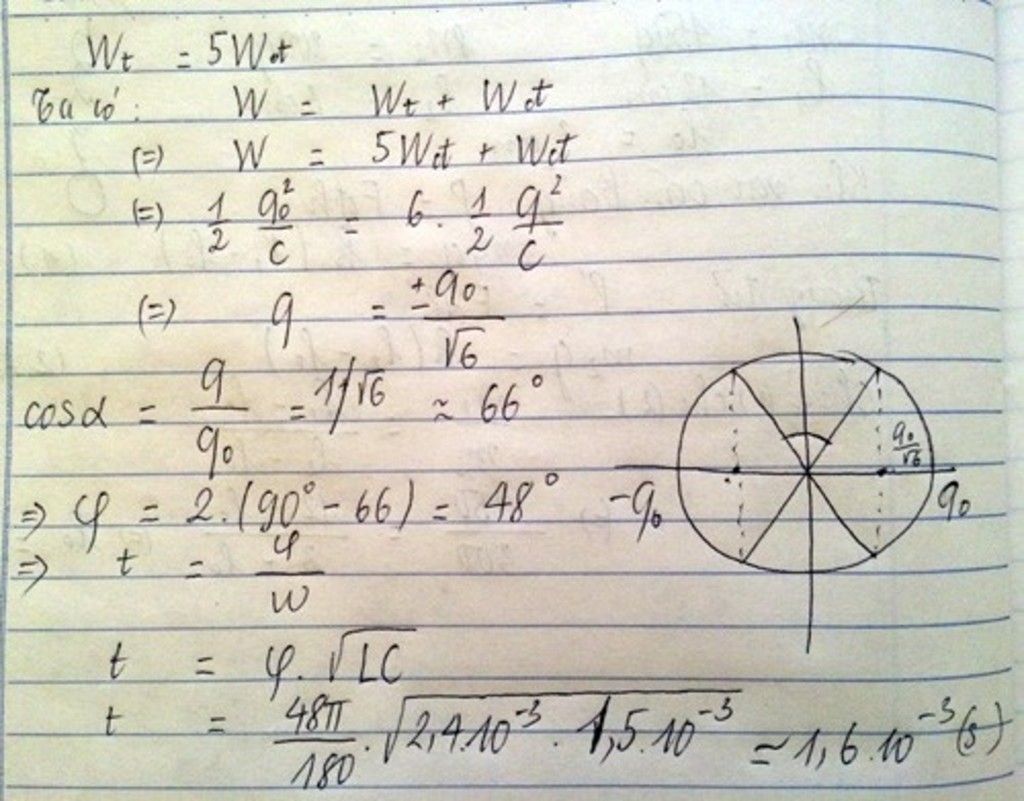 Wt = 5Wđt
Ta có: W = Wt + Wđt
(=) W = 5Wđt + Wđt
(=) 1/2 q0²/C = 6 . 1/2 q²/C
(=) q = ±q0/√6
cosα = q/q0 = 1/√6 ≈ 66°
⇒ φ = 2.(90° - 66) = 48°
⇒ t = φ/w
t = φ.√LC
t = 48π/180 . √2,4.10⁻³ . 1,5.10⁻³ ≃ 1,6.10⁻³(s)
q0/√6
-q0 q0